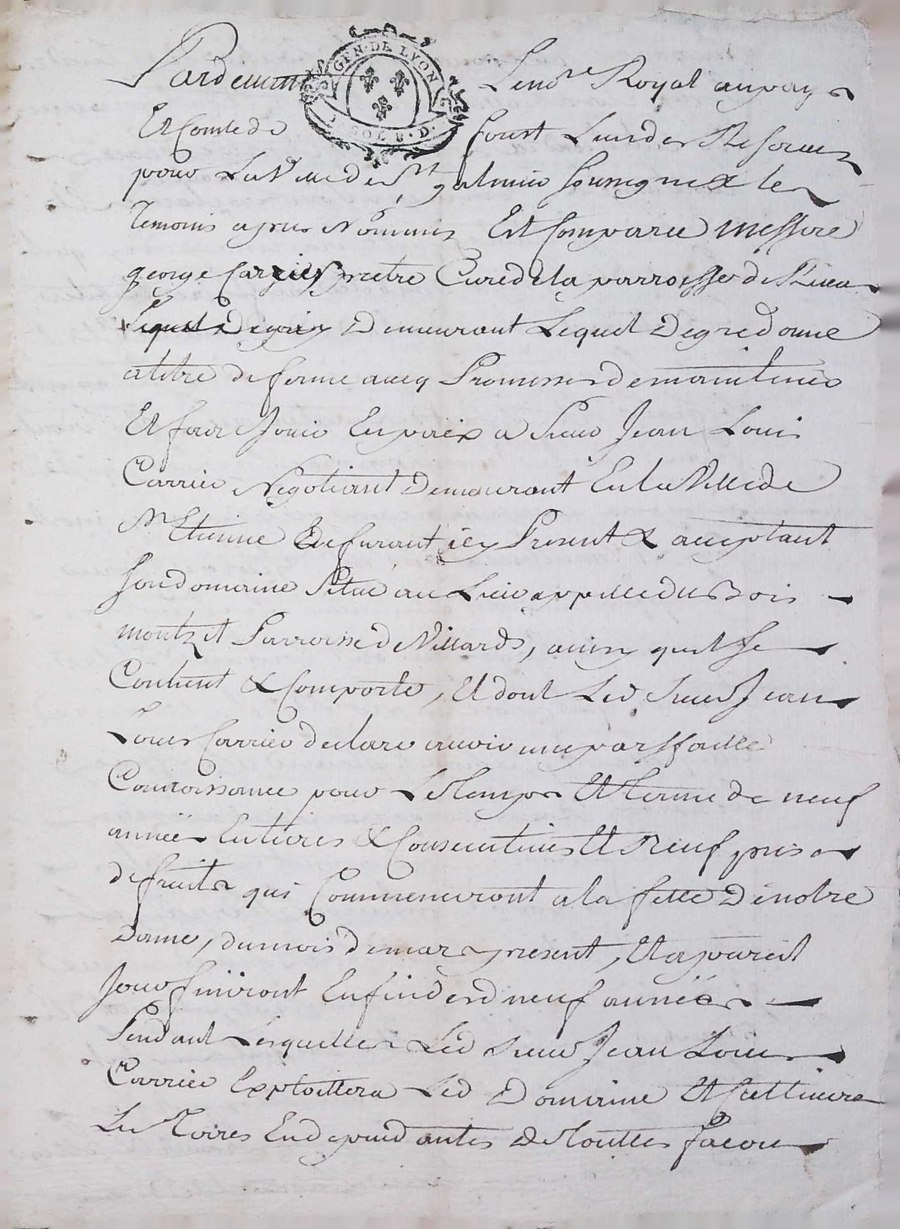 GEN. DE LYON
SOL 8. D.
Pardevant Le no.re Royal au pays
Et Comté de forest L'un des Reservez
pour La Ville de St galmier soussigné & les
Temoins apres Nommés Est Comparu Messire
george Carrier prêtre Curé de la parroisse de
Demeurant Lequel De gré donne
a titre de ferme avecq Promesses de maintenir
Et faire Jouir En paix a Sieur Jean Louis
Carrier Negotiant Demeurant En la Ville de
St Etienne En furant icy Present & acceptant
son domaine Situé au Lieu appellé du Bois
montzil Parroisse de Villards, ainsy quil se
Contient & Comporte, Et dont Led Sieur Jean
Louis Carrier declare avoir une parffaitte
Connoissance pour Le temps Et terme de neuf
années Entieres & Consecutives Et Neuf prises
de fruits qui Commenceront a la fette De notre
Dame, du mois de mars present, Et a pareil
Jour finiront En fin desd neuf années
Pendant Lesquelles Led Sieur Jean Louis
Carrier Exploittera Led Domaine Et Cultivera
Les Terres En dependantes De touttes facons